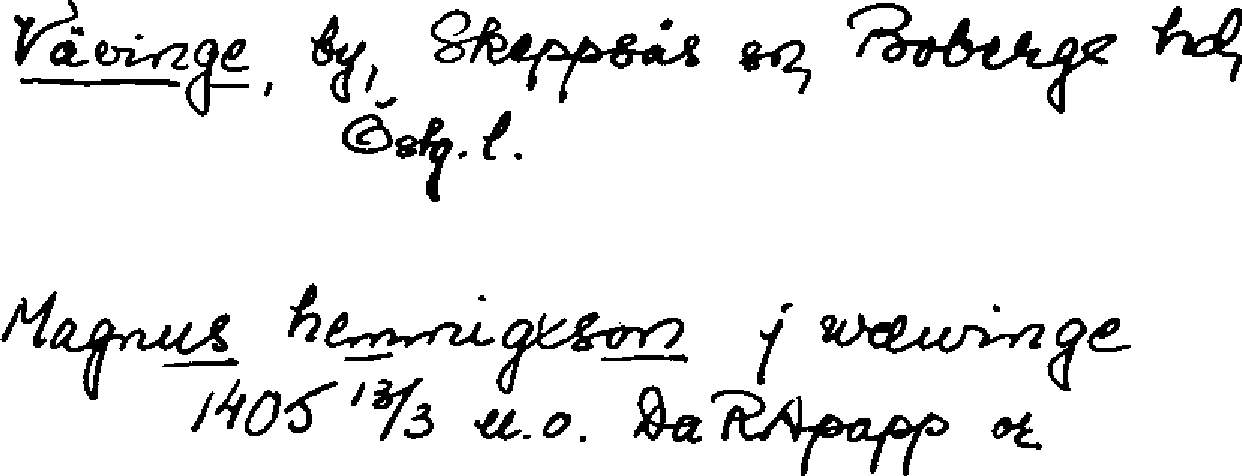 Vävinge, by, Skeppsås sn, Boberge hd,
Östg. l.
Magnus hemmigxson j wæwinge
1405 13/3 u.o. Da RApapp or.